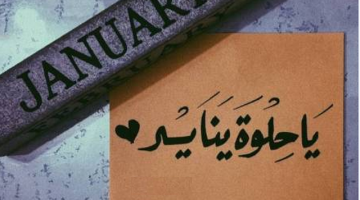 JANUAR
يَا حِلْوَة يَنَايـر ♥